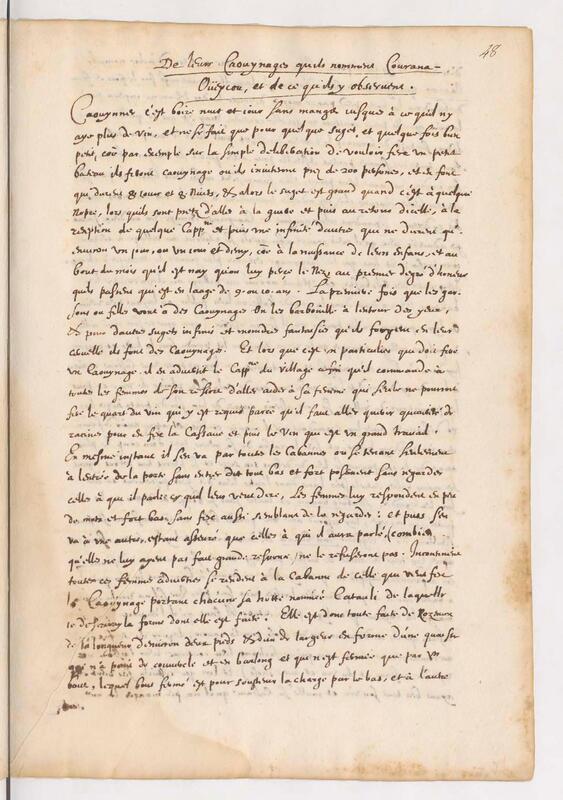 48
De leurs Caouynages quils nomment Courana-
Oüÿcou, et de ce quils y observent.
Caouynner c'est boire nuit et iour sans manger iusques à ce quil ny
aye plus de vin, et ne se fait que pour quelque suget, et quelque fois bien
petit, coē par exemple sur la simple deliberation de vouloir fēre un petit
bateau ils feront caouynage ou ils inviteront prez de 200 persones, et en font
qui durent 4 iours et 4 nuits, & alors le suget est grand quand c'est à quelque
Nopce, lors quils sont prests d'aller à la guere et puis au retour dicelle, à la
reception de quelque Capp.ne et puis une infinité d'autres qui ne durent qu'
environ un iour, ou un iour et demy, coē à la naissance de leurs enfans, et au
bout du mois qu'il est nay qu'on luy perce le Nez au premier degré d'honeur
quils passent qui est en laage de 9. ou 10. ans. La premiere fois que les gar-
sons ou filles vont à des Caouynages On les barbouille à lentour des yeux,
& pour d'autres sugets infinis et moindres fantaisies qu'ils forgent en leur
cervelle ils font des Caouynages. Et lors que c'est un particulier qui doit fēre
un Caouynage il en advertit le Capp.ne du village afin qu'il commande à
toutes les femmes de son ressort d'aller aider à sa femme qui seule ne pouroit
fēre le quart du vin qui y est requit parce qu'il faut aller querir quantité de
racines pour en fēre la Cassave et puis le Vin qui est un grand travail.
En mesme instant il s'en va par toutes les Cabannes ou se tenant seulement
à lentrée de la porte sans entrer dit tout bas et fort posément sans regarder
celles à qui il parle ce quil leur veut dire, Les femmes luy respondent en peu
de mots et fort bas, sans fēre aussi semblant de le regarder: et puis s'en
va à une autre, estant asseuré que celles à qui il aura parlé (combien
qu'elles ne luy ayent pas fait grande response) ne le refuseront pas. Incontinent
toutes ces femmes adverties se rendent à la Cabanne de celle qui veut fēre
le Caouynage portant chacune sa hotte nommée Catauli de laquelle
la forme dont elle est faite: Elle est donc toute faite de
de la longueur d'environ deux pieds & d'un de largeur en forme d'une quaisse
qui n'a point de couvercle et en barlong et qui n'est fermée que par un
bout, lequel bout fermé est pour soustenir la charge par le bas, et à l'autre